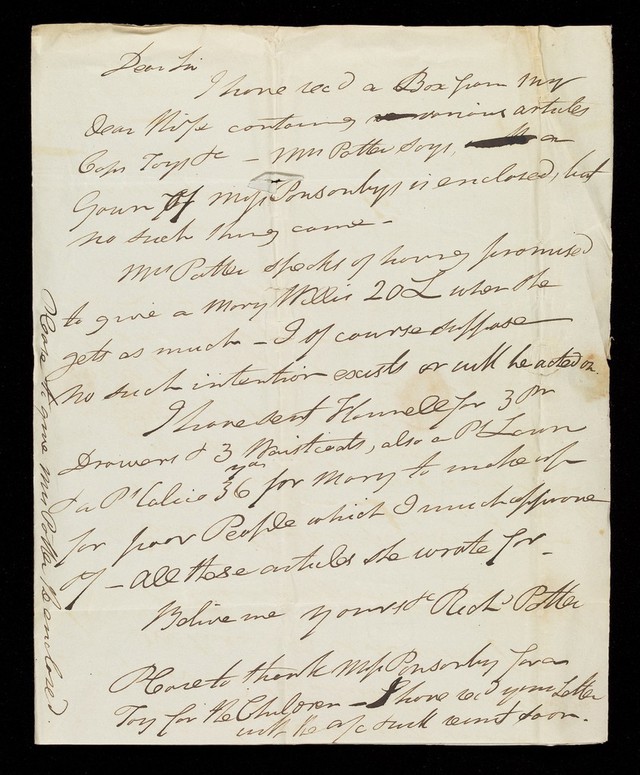 Dear Sir
I have rec'd a Box from my
dear Wife containing various articles
Caps Toys &c – Mrs Potter says, a
Gown of Miss Ponsonbys is enclosed, but
no such thing came –
Mrs Potter speaks of having promised
to give a Mary Willis 20 L when she
gets as much – I of course suppose
no such intention exists or will be acted on.
I have sent Flannell for 3 Pr
Drawers & 3 Waistcoats, also a Ps Lawn
& a Ps Calico 36 yds for Mary to make up
for poor People which I much approve
of – all these articles she wrote for –
Believe me yours &c Richd Potter
Please to thank Miss Ponsonby for a
Toy for the Children – I have recd your Letter
with the a/c & will remit soon.
Please to give Mrs Potter the enclosed.